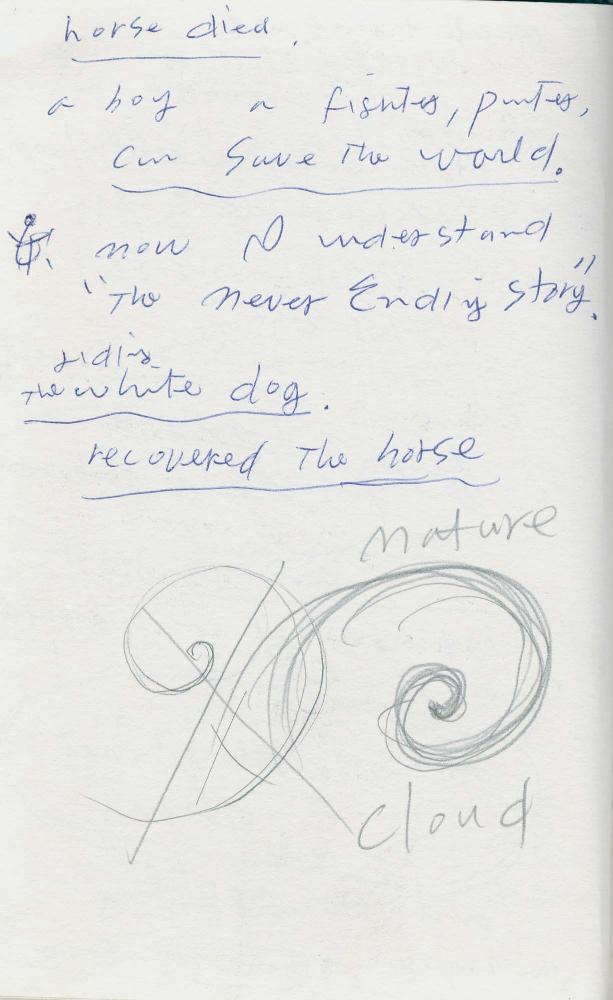 horse died.
a boy a fighter, painter,
can save the world.
now I understand
"The never Ending story".
riding
the white dog.
recovered The horse
nature
cloud